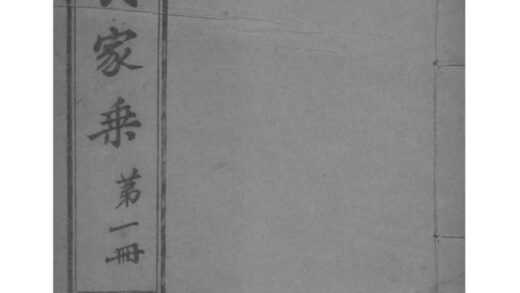 家乘
第一冊